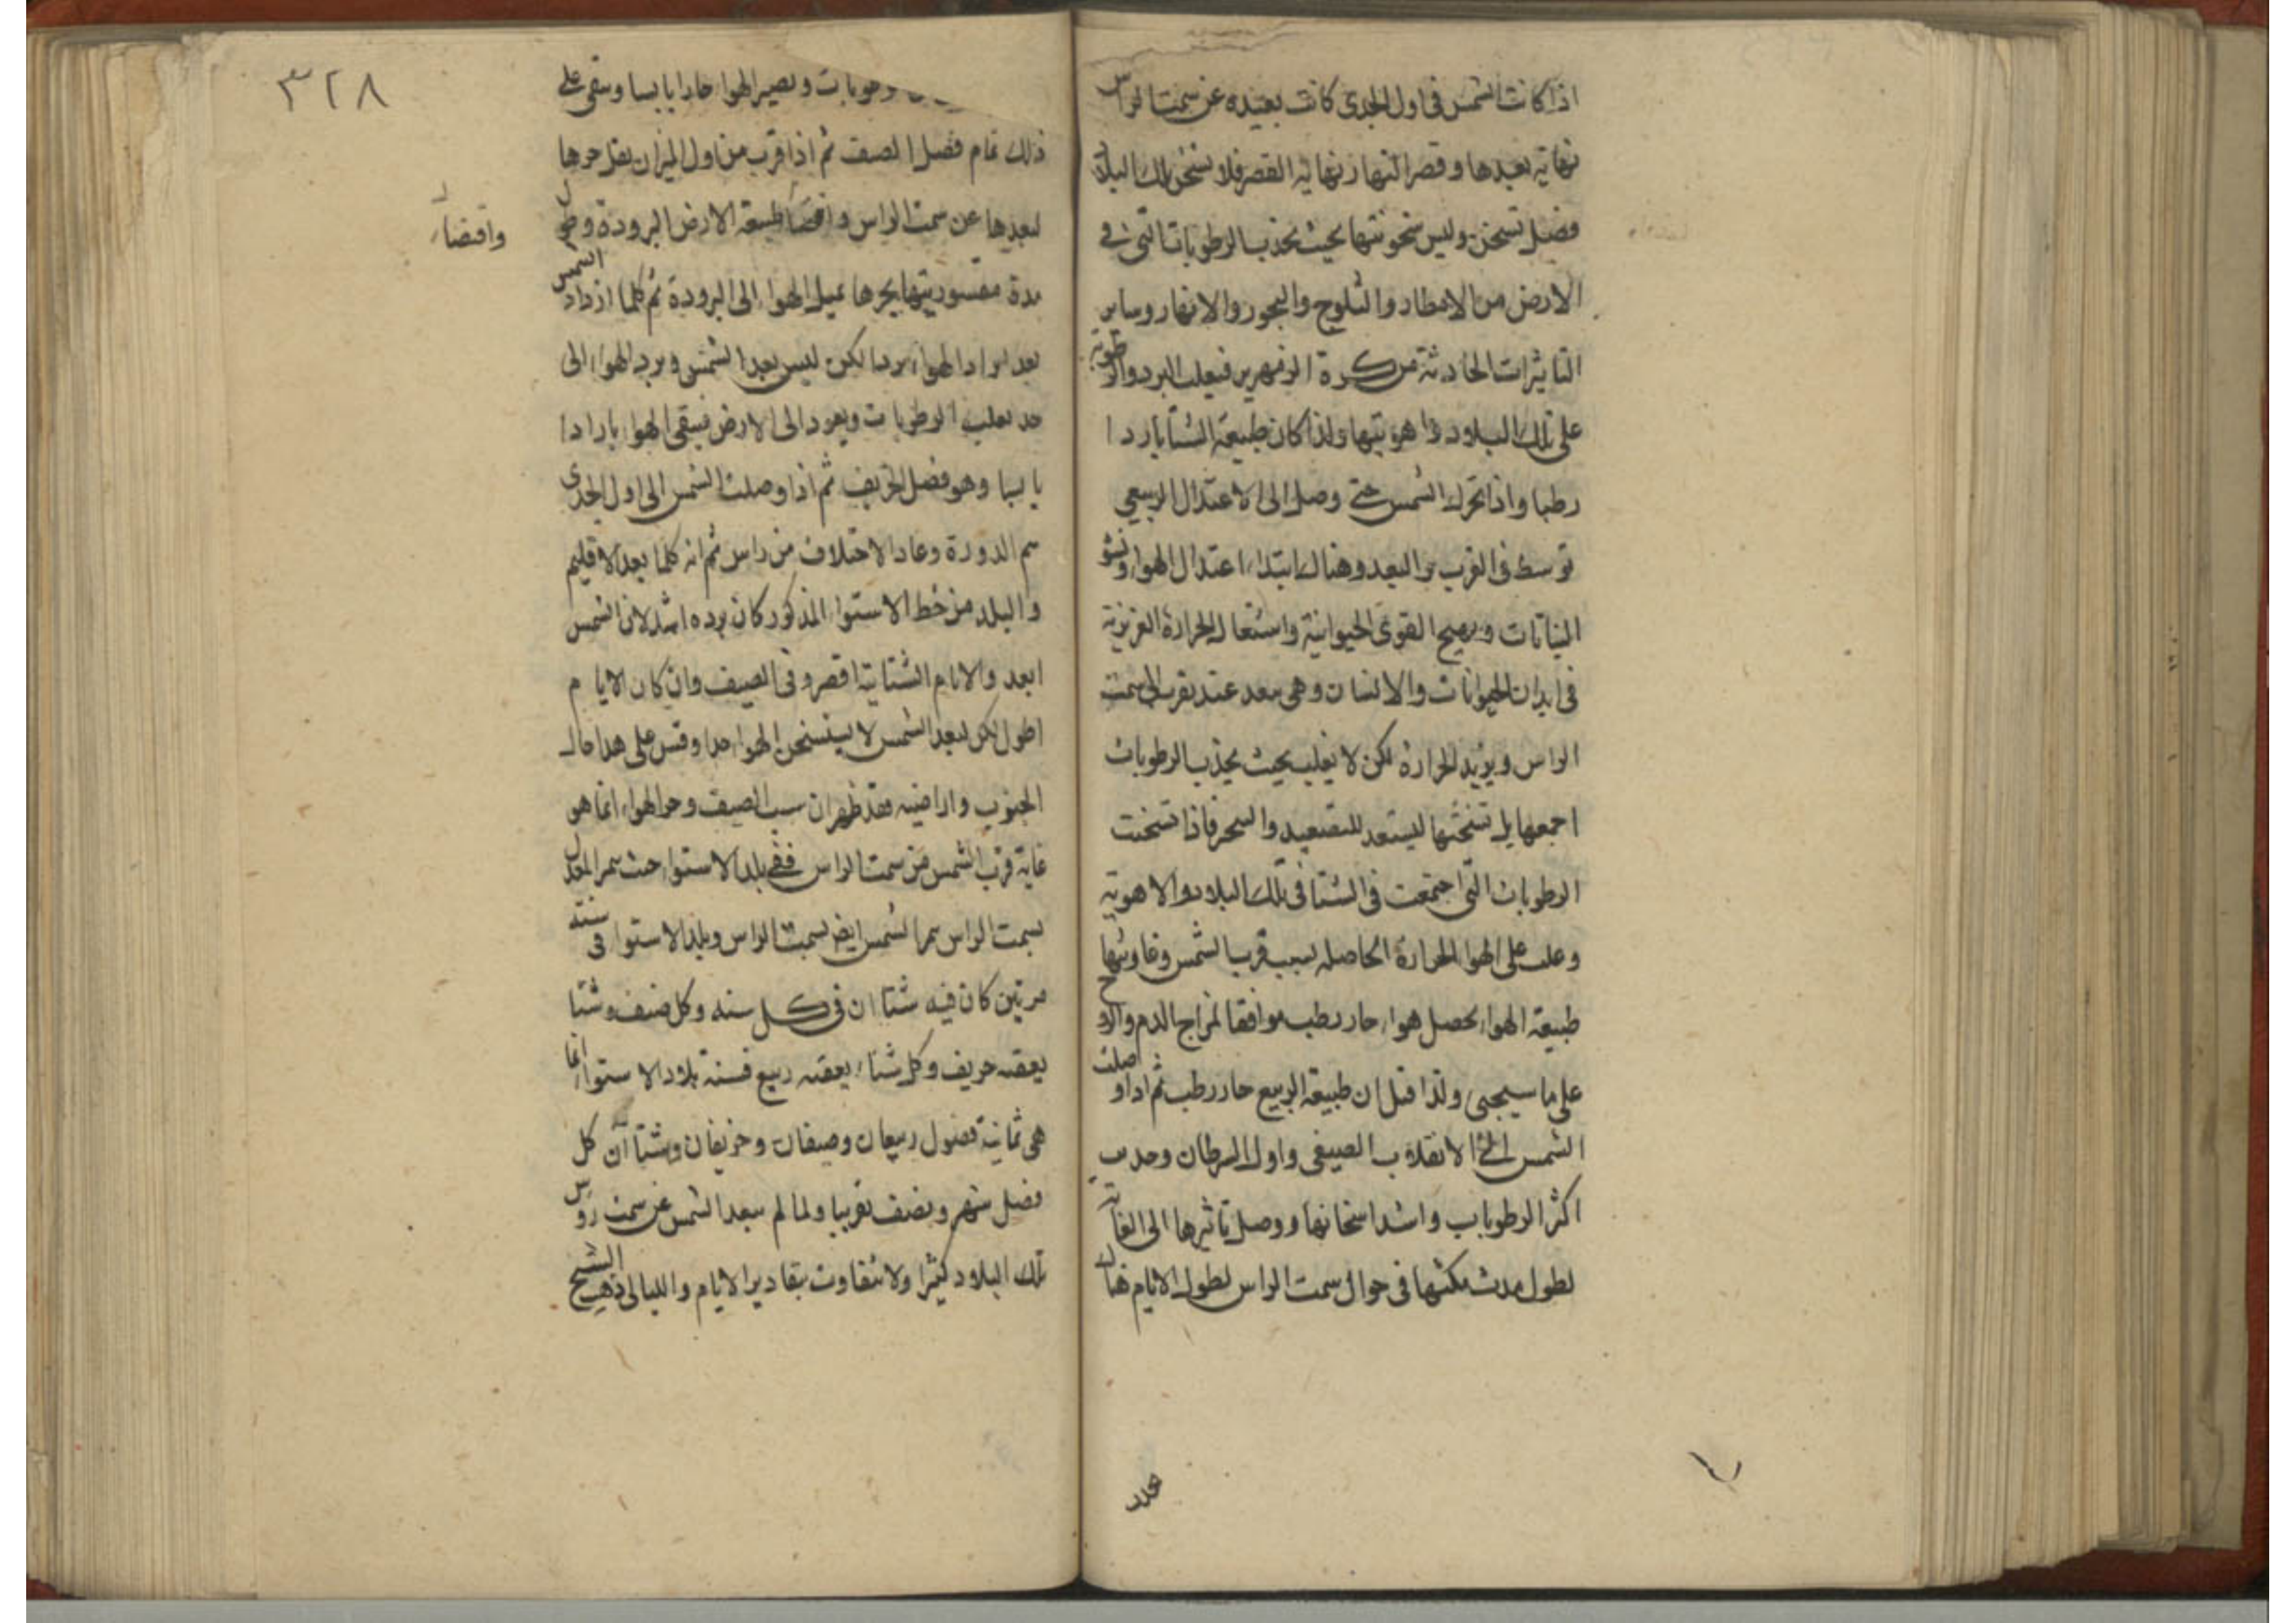 اذا كانت الشمس فى اول الجدى كانت بعيده عن سمت الراس
نهاية بعدها وقصر النهار نهاية القصر فلا تسخن تلك البلاد
فضل تسخن وليس سخونتها بحيث يجذب الرطوبات التى فى
الارض من الامطار والثلوج والبحور والانهار وساير
التاثيرات الحادثة من كرة الزمهرير فيغلب البرد والرطوبة
على تلك البلاد واهويتها ولذا كان طبيعة الشتا باردا
رطبا واذا تحرك الشمس حتى وصل الى الاعتدال الربيعى
توسط فى القرب والبعد وهنالك ابتداء اعتدال الهواء ونشو
النباتات وتهيج القوى الحيوانية واشتعال الحرارة الغريزية
فى ابدان الحيوانات والانسان وهى بعد عند تقرب الى سمت
الراس ويزيد الحرارة لكن لا يغلب بحيث يجذب الرطوبات
اجمعها بل تسخنها ليستعد للتصعيد والتبخر فاذا تسخنت
الرطوبات التى اجتمعت فى الشتا فى تلك البلاد والاهوية
وغلب على الهوا الحرارة الحاصله بسبب قرب الشمس وعاونتها
طبيعة الهواء يحصل هواء حار رطب موافقا لمزاج الدم والروح
على ما سيجىء ولذا قيل ان طبيعة الربيع حار رطب ثم اذا وصلت
الشمس الى الانقلاب الصيفى واول السرطان وجذب
اكثر الرطوبات واشد اسخانها ووصل تاثيرها الى الغاية
لطول مدت مكثها فى حوال سمت الراس لطول الايام هناك
٣٢٨
رطوبات ويصير الهوا حارا يابسا ويبقى على
ذلك تمام فصل الصيف ثم اذا قرب من اول الميزان يقل حرها
لبعدها عن سمت الراس واقتضاء طبيعة الارض البرودة وطول
واقتضاء
مدة مقسوريتها بحرها يميل الهواء الى البرودة ثم كلما ازداد الشمس
بعدا زاد الهواء بردا لكن ليس بعد الشمس وبرد الهواء الى
حد يغلب الرطوبات ويعود الى الارض فيبقى الهوا باردا
يابسا وهو فصل الخريف ثم اذا وصلت الشمس الى اول الجدى
تم الدورة وعاد الاختلاف من راس ثم انه كلما بعد الاقليم
والبلد من خط الاستوا المذكور كان برده اشد لان الشمس
ابعد والايام الشتائية اقصر وفى الصيف وان كان الايام
اطول لكن لبعد الشمس لا يتسخن الهواء جدا وقس على هذا حال
الجنوب واراضيه فقد ظهر ان سبب الصيف وحر الهواء انما هو
غاية قرب الشمس من سمت الراس ففى بلد الاستواء حيث يمر المعدل
بسمت الراس يمر الشمس ايض بسمت الراس وبلد الاستوا فى سنته
مرتين كان فيه شتاان فى كل سنه وكل صيف وشتا
يعقبه خريف وكل شتاء يعقبه ربيع فسنة بلاد الاستواء انما
هى ثمانية فصول ربيعان وصيفان وخريفان وشتاآن كل
فصل شهر ونصف تقريبا ولما لم يبعد الشمس عن سمت روس
تلك البلاد كثيرا ولا يتفاوت بتقادير الايام والليالى ذهب الشيخ